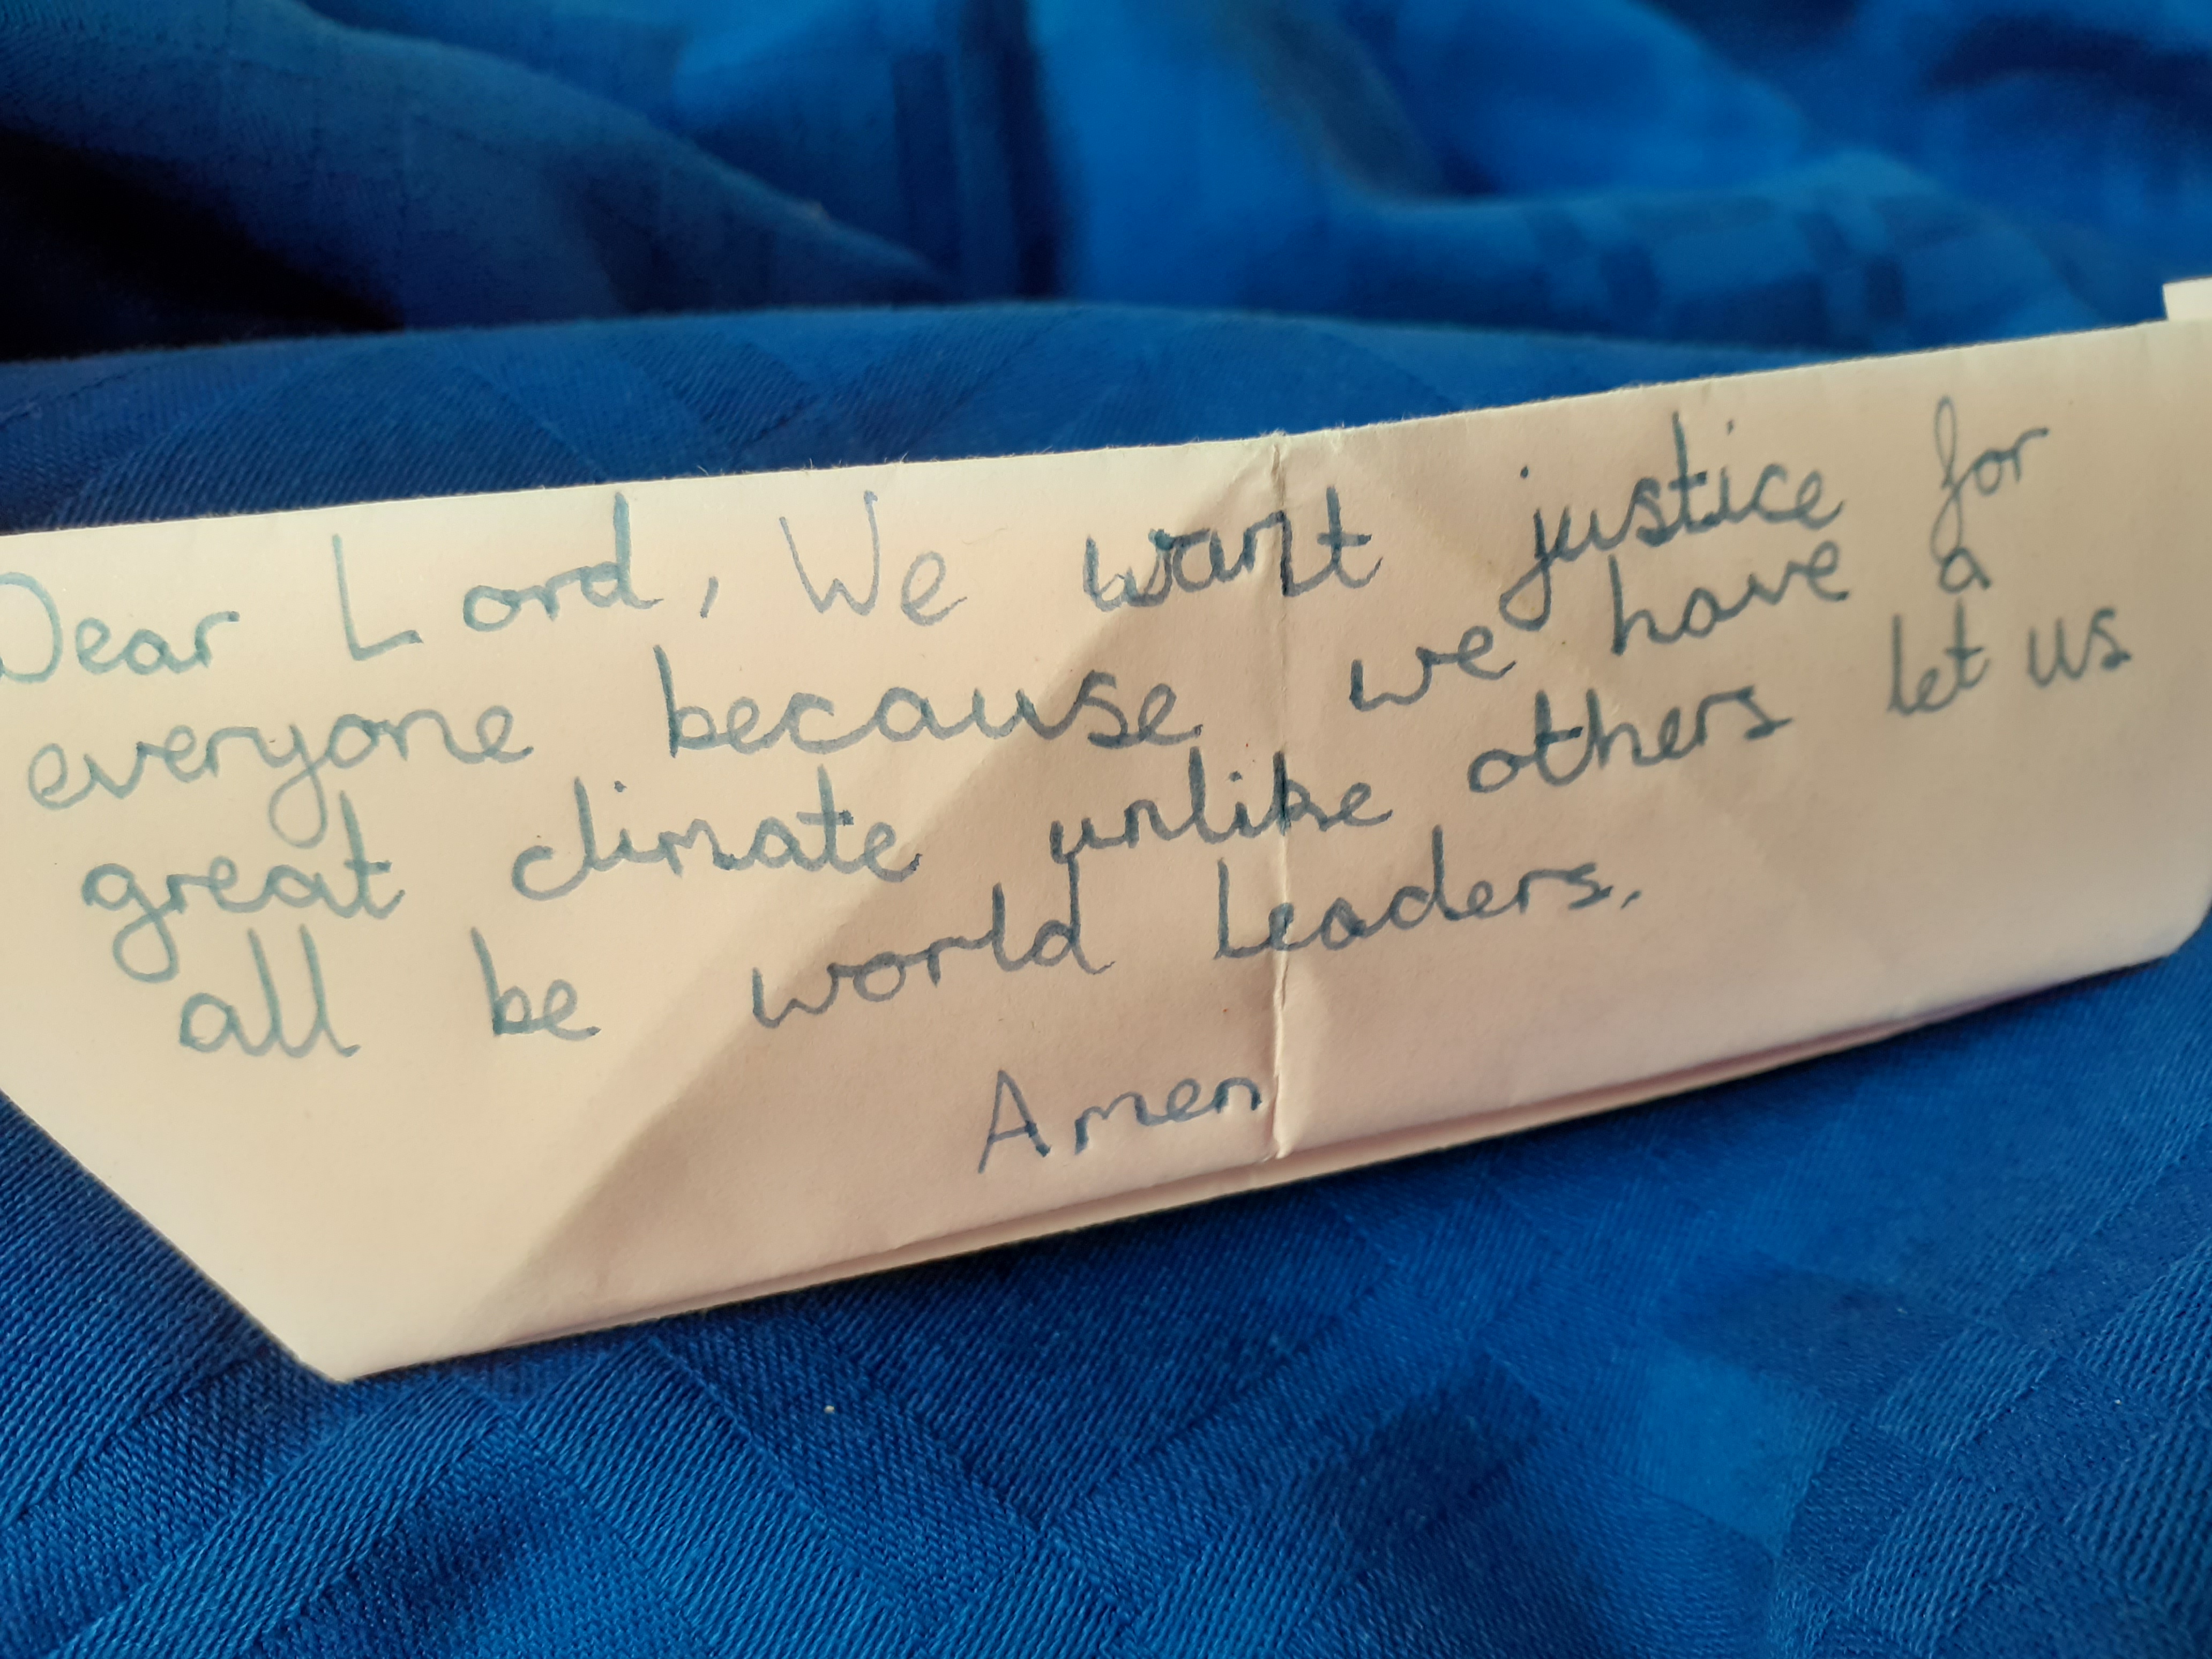 Dear Lord, We want justice for
everyone because we have a
great climate unlike others let us
all be world leaders.
Amen